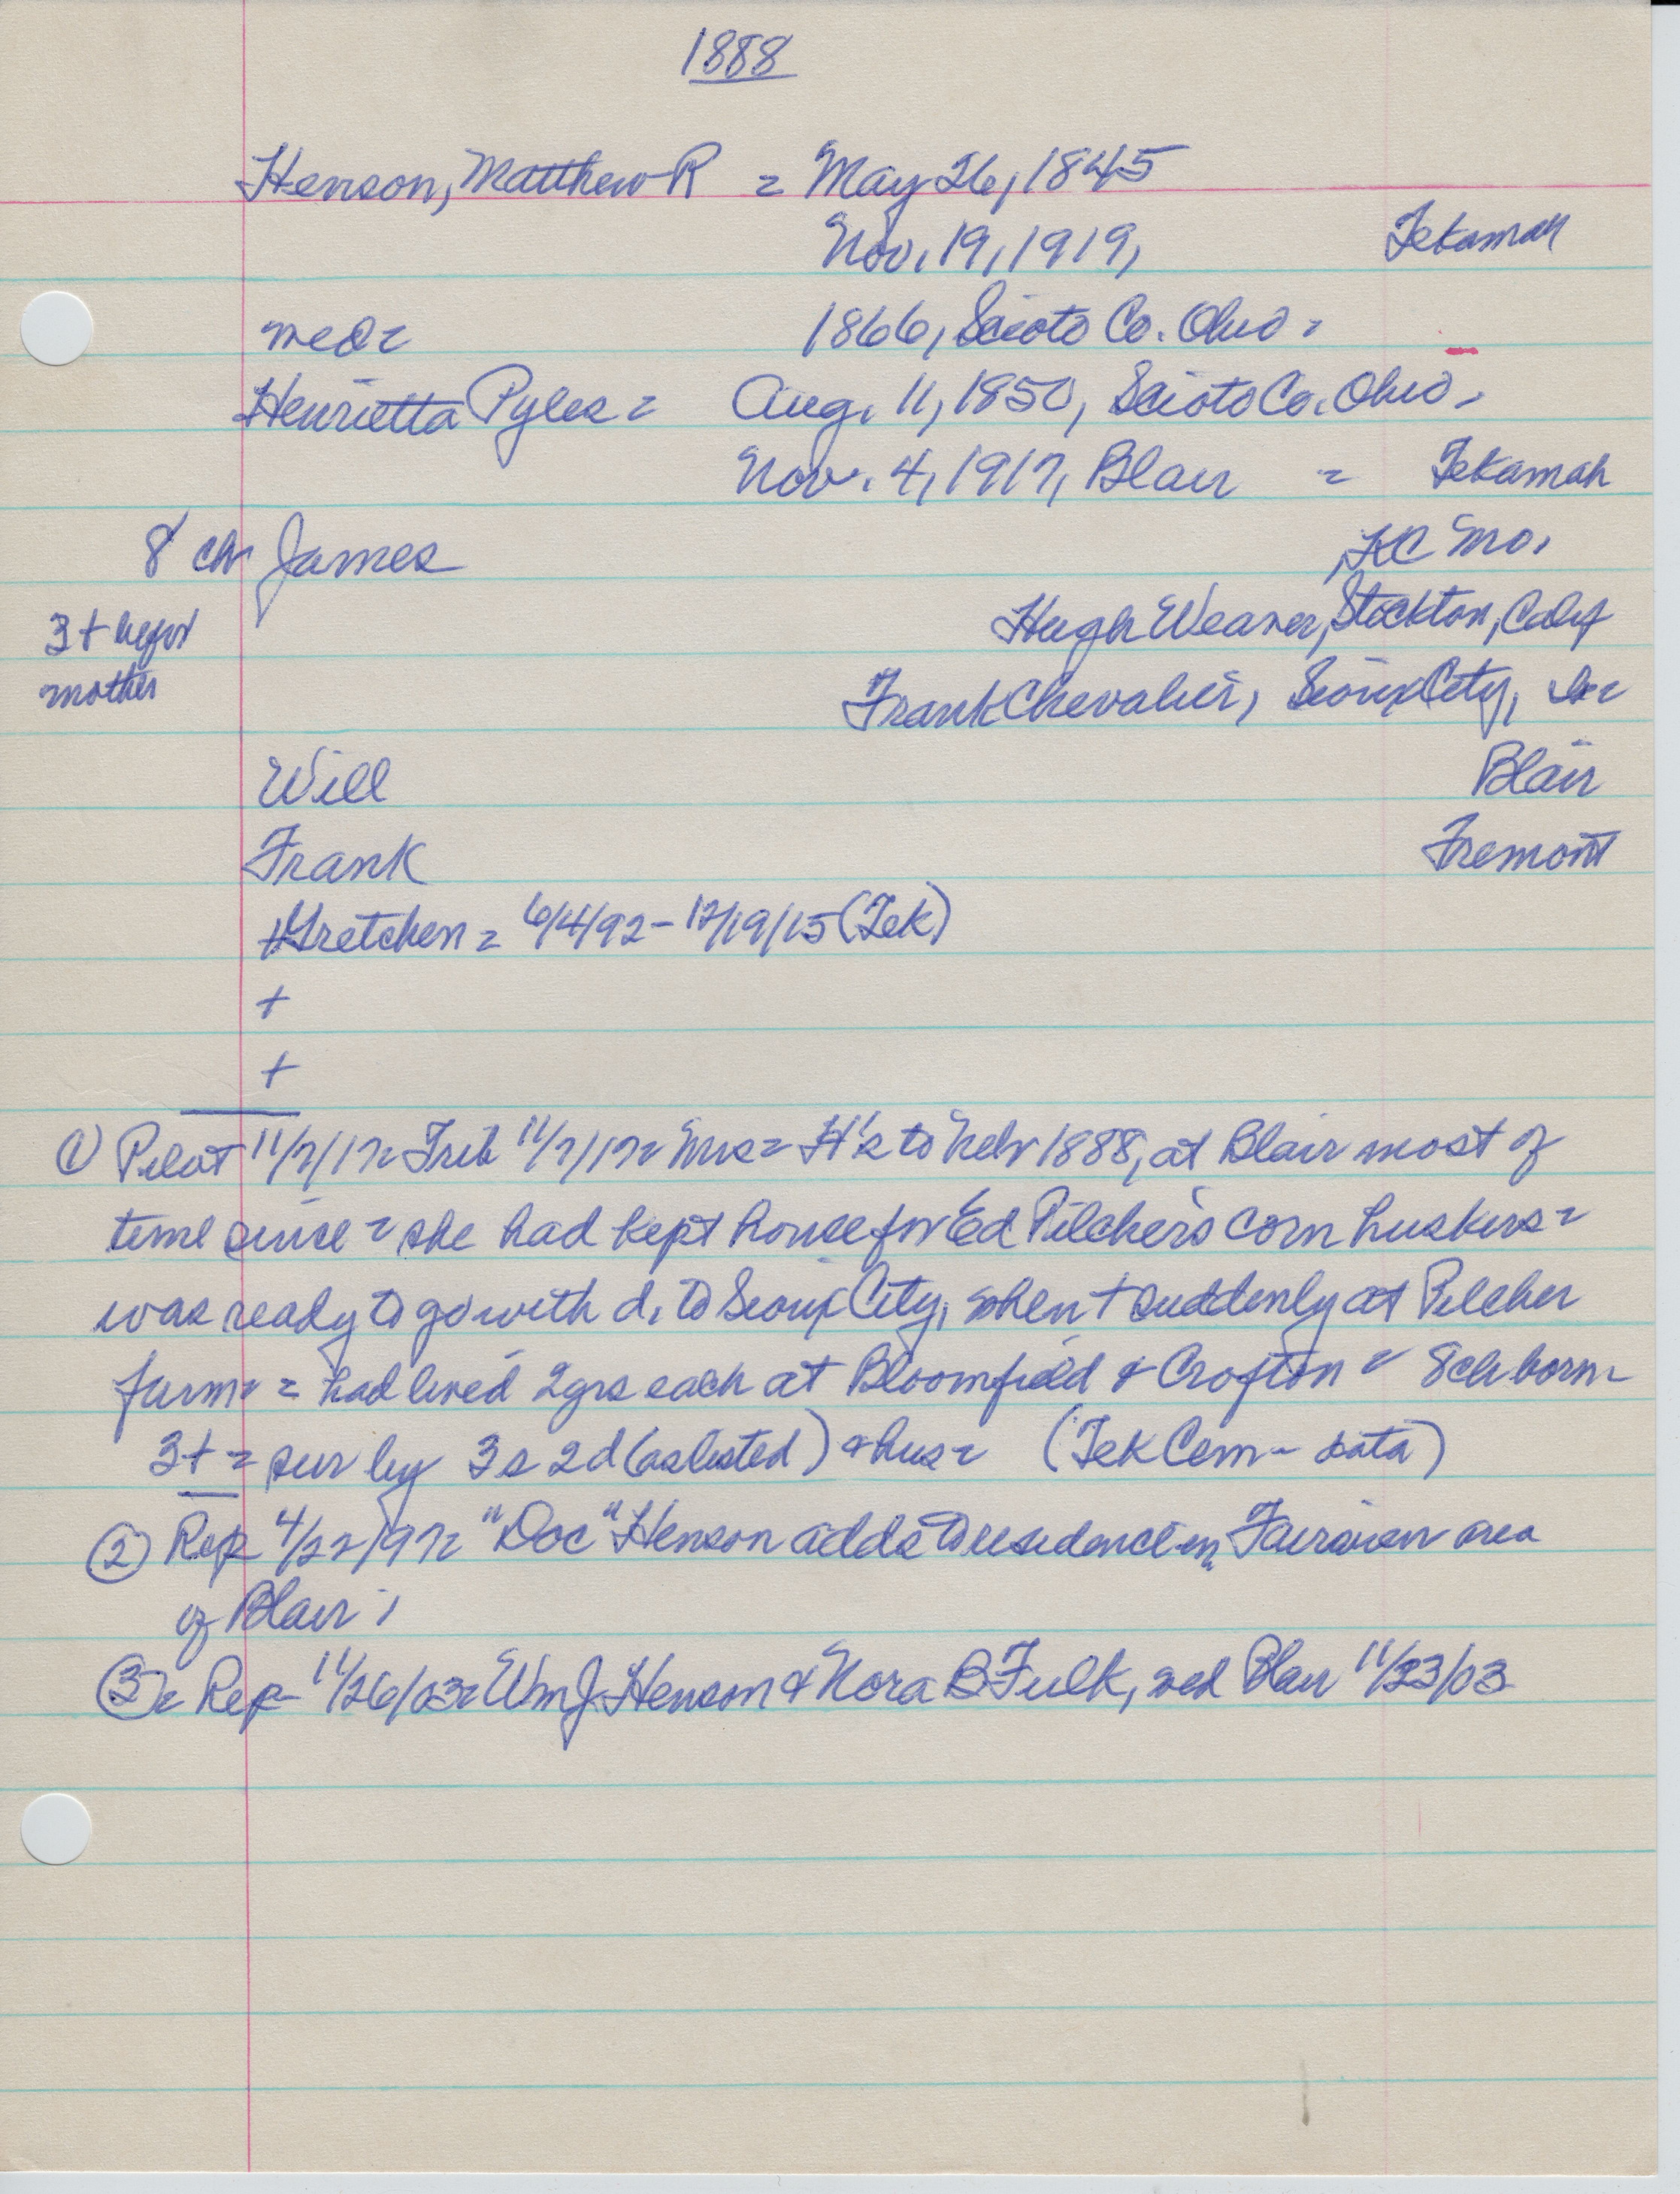 1888
Henson, Matthew R = May 26, 1845
Nov. 19, 1919, Tekamah
med = 1866, Scioto Co. Ohio =
Henrietta Pyles = Aug. 11, 1850, Scioto Co. Ohio =
Nov. 4, 1917, Blair = Tekamah
8 ch James KC Mo.
3 + befor Hugh Weaver, Stockton, Calif
mother Frank Chevalier, Sioux City,
Will Blair
Frank Fremont
+ Gretchen = 6/4/92 - 12/19/15 (Tek)
+
+
① Pilot 11/7/17 = Trib 11/7/17 = Mrs = H's to Nebr 1888, at Blair most of
time since = she had kept house for Ed Pilcher's corn huskers =
was ready to go with d. to Sioux City, when + suddenly at Pilcher
farm = had lived 2 yrs each at Bloomfield & Crofton = 8 ch born -
3 + = sur by 3 s 2 d (as listed) & hus = (Tek Cem - data)
② Rep 4/22/97 = "Doc" Henson adds to residence in Fairview area
of Blair ;
③ = Rep 11/26/03 = Wm J Henson & Nora B Fulk, Blair 11/23/03